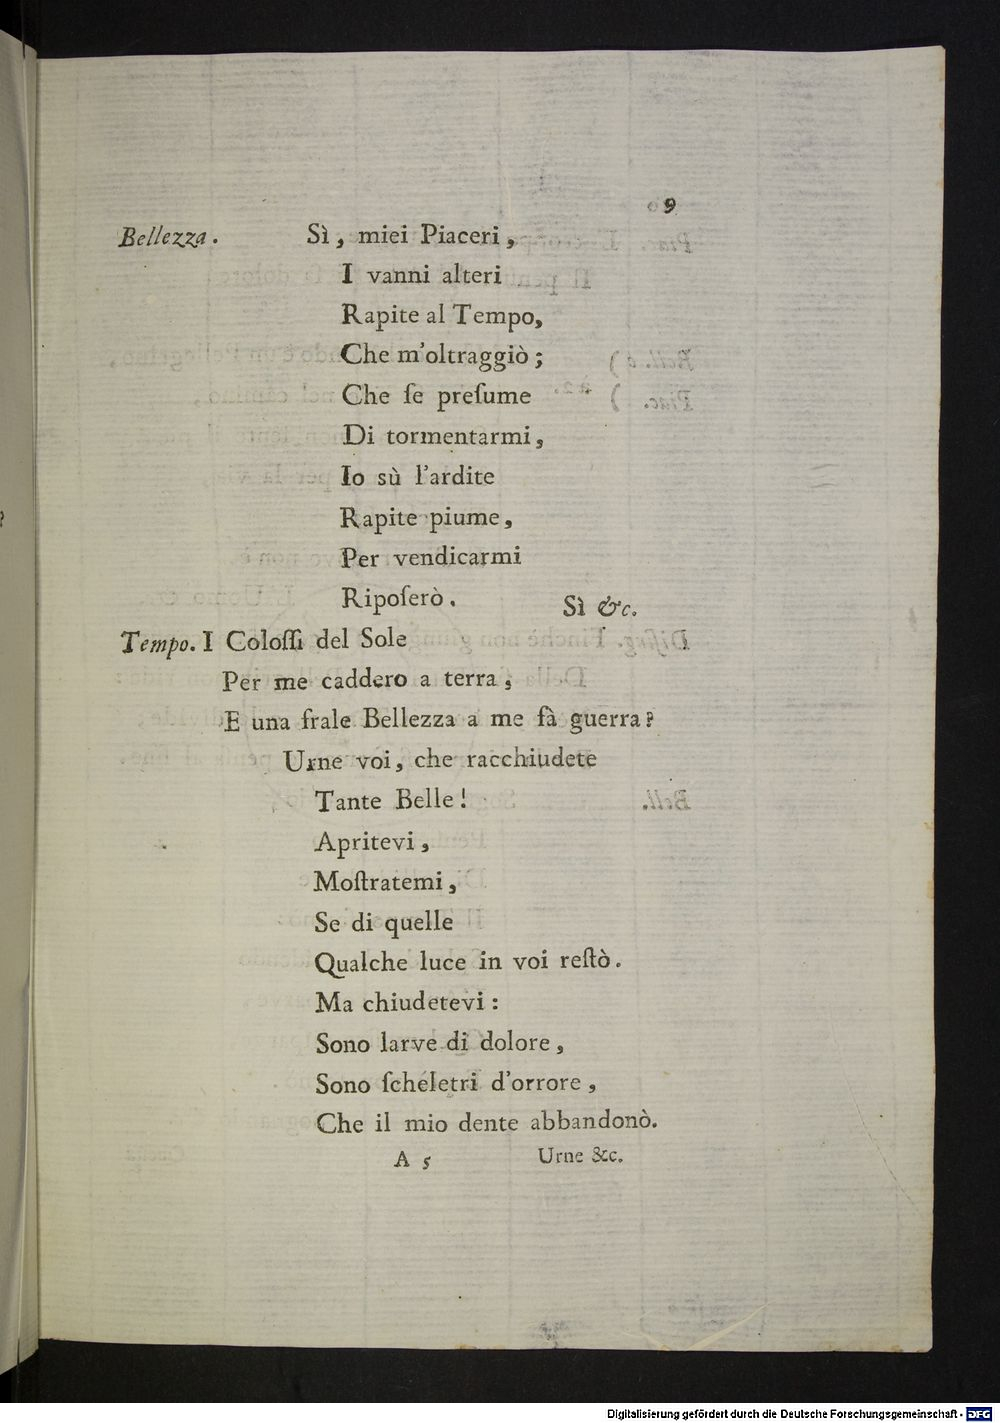 9
Bellezza. Sì, miei Piaceri,
I vanni alteri
Rapite al Tempo,
Che m'oltraggiò;
Che ſe preſume
Di tormentarmi,
Io sù l'ardite
Rapite piume,
Per vendicarmi
Ripoſerò.
Sì &c.
Tempo. I Coloſſi del Sole
Per me caddero a terra,
E una frale Bellezza a me fà guerra?
Urne voi, che racchiudete
Tante Belle!
Apritevi,
Moſtratemi,
Se di quelle
Qualche luce in voi reſtò.
Ma chiudetevi:
Sono larve di dolore,
Sono ſcheletri d'orrore,
Che il mio dente abbandonò.
A 5 Urne &c.
Digitalisierung gefördert durch die Deutsche Forschungsgemeinschaft - DFG